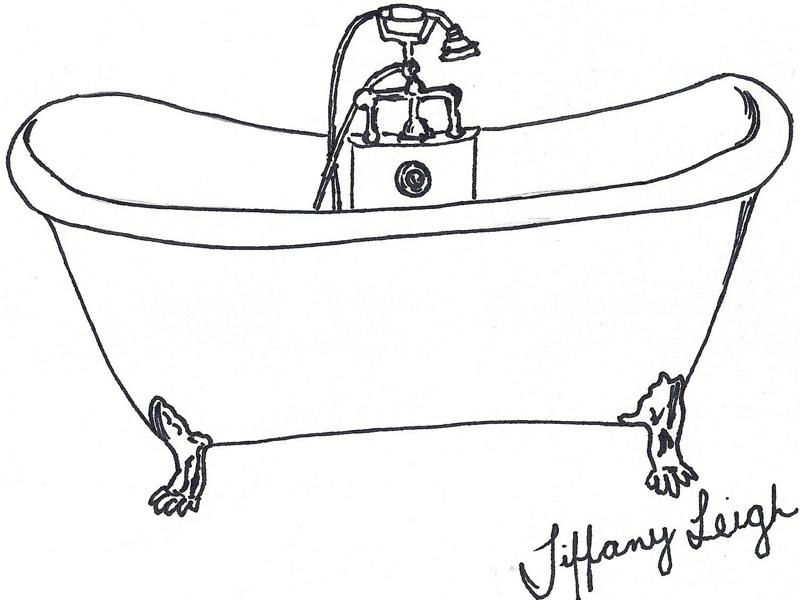 Tiffany Leigh